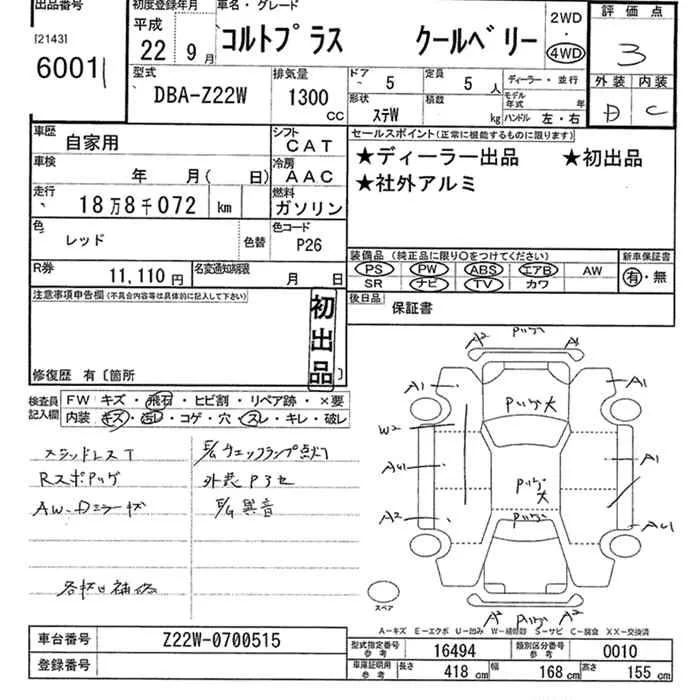 出品番号 初度登録年月 車名・グレード 2WD 評価点
[2143] 平成 ・
6001 22年 9月 コルトプラス クールベリー 4WD 3
型式 排気量 ドア 5 定員 5人 ディーラー・並行 外装 内装
DBA-Z22W 1300cc 形状 ステW 積載 kg モデル年式 年 D C
ハンドル 左・右
車歴 自家用 シフト CAT セールスポイント(正常に機能するものに限ります)
車検 年 月( 日) 冷房 AAC ★ディーラー出品 ★初出品
走行 18万8千072 km 燃料 ガソリン ★社外アルミ
色 レッド 色替 色コード P26
装備品(純正品に限り○をつけてください) 新車保証書
R券 11,110円 名変通知期限 月 日 PS PW ABS エアB AW 有・無
SR ナビ TV カワ
注意事項申告欄(不具合内容等は具体的に記入して下さい) 初出品 後日品 保証書
修復歴 有〔箇所 〕
検査員記入欄 FW キズ・飛石・ヒビ割・リペア跡・×要
内装 キズ・汚レ・コゲ・穴・スレ・キレ・破レ
スタッドレスT E/gチェックランプ点灯
RスポPリグ 外装Pヨセ
AW・Dミラーキズ E/g異音
各杯口補修
A2 Pリグ A1
A1 Pリグ大 A1
W2
AU1 Pリグ大 A1
A2 Pリグ AU1
スペア
A2 Pリグ A2
A-キズ E-エクボ U-凹み W-補修跡 S-サビ C-腐食 XX-交換済
車台番号 Z22W-0700515 型式指定番号 参考 16494 類別区分番号 参考 0010
登録番号 車庫証明用 参考 長さ 418cm 幅 168cm 高さ 155cm